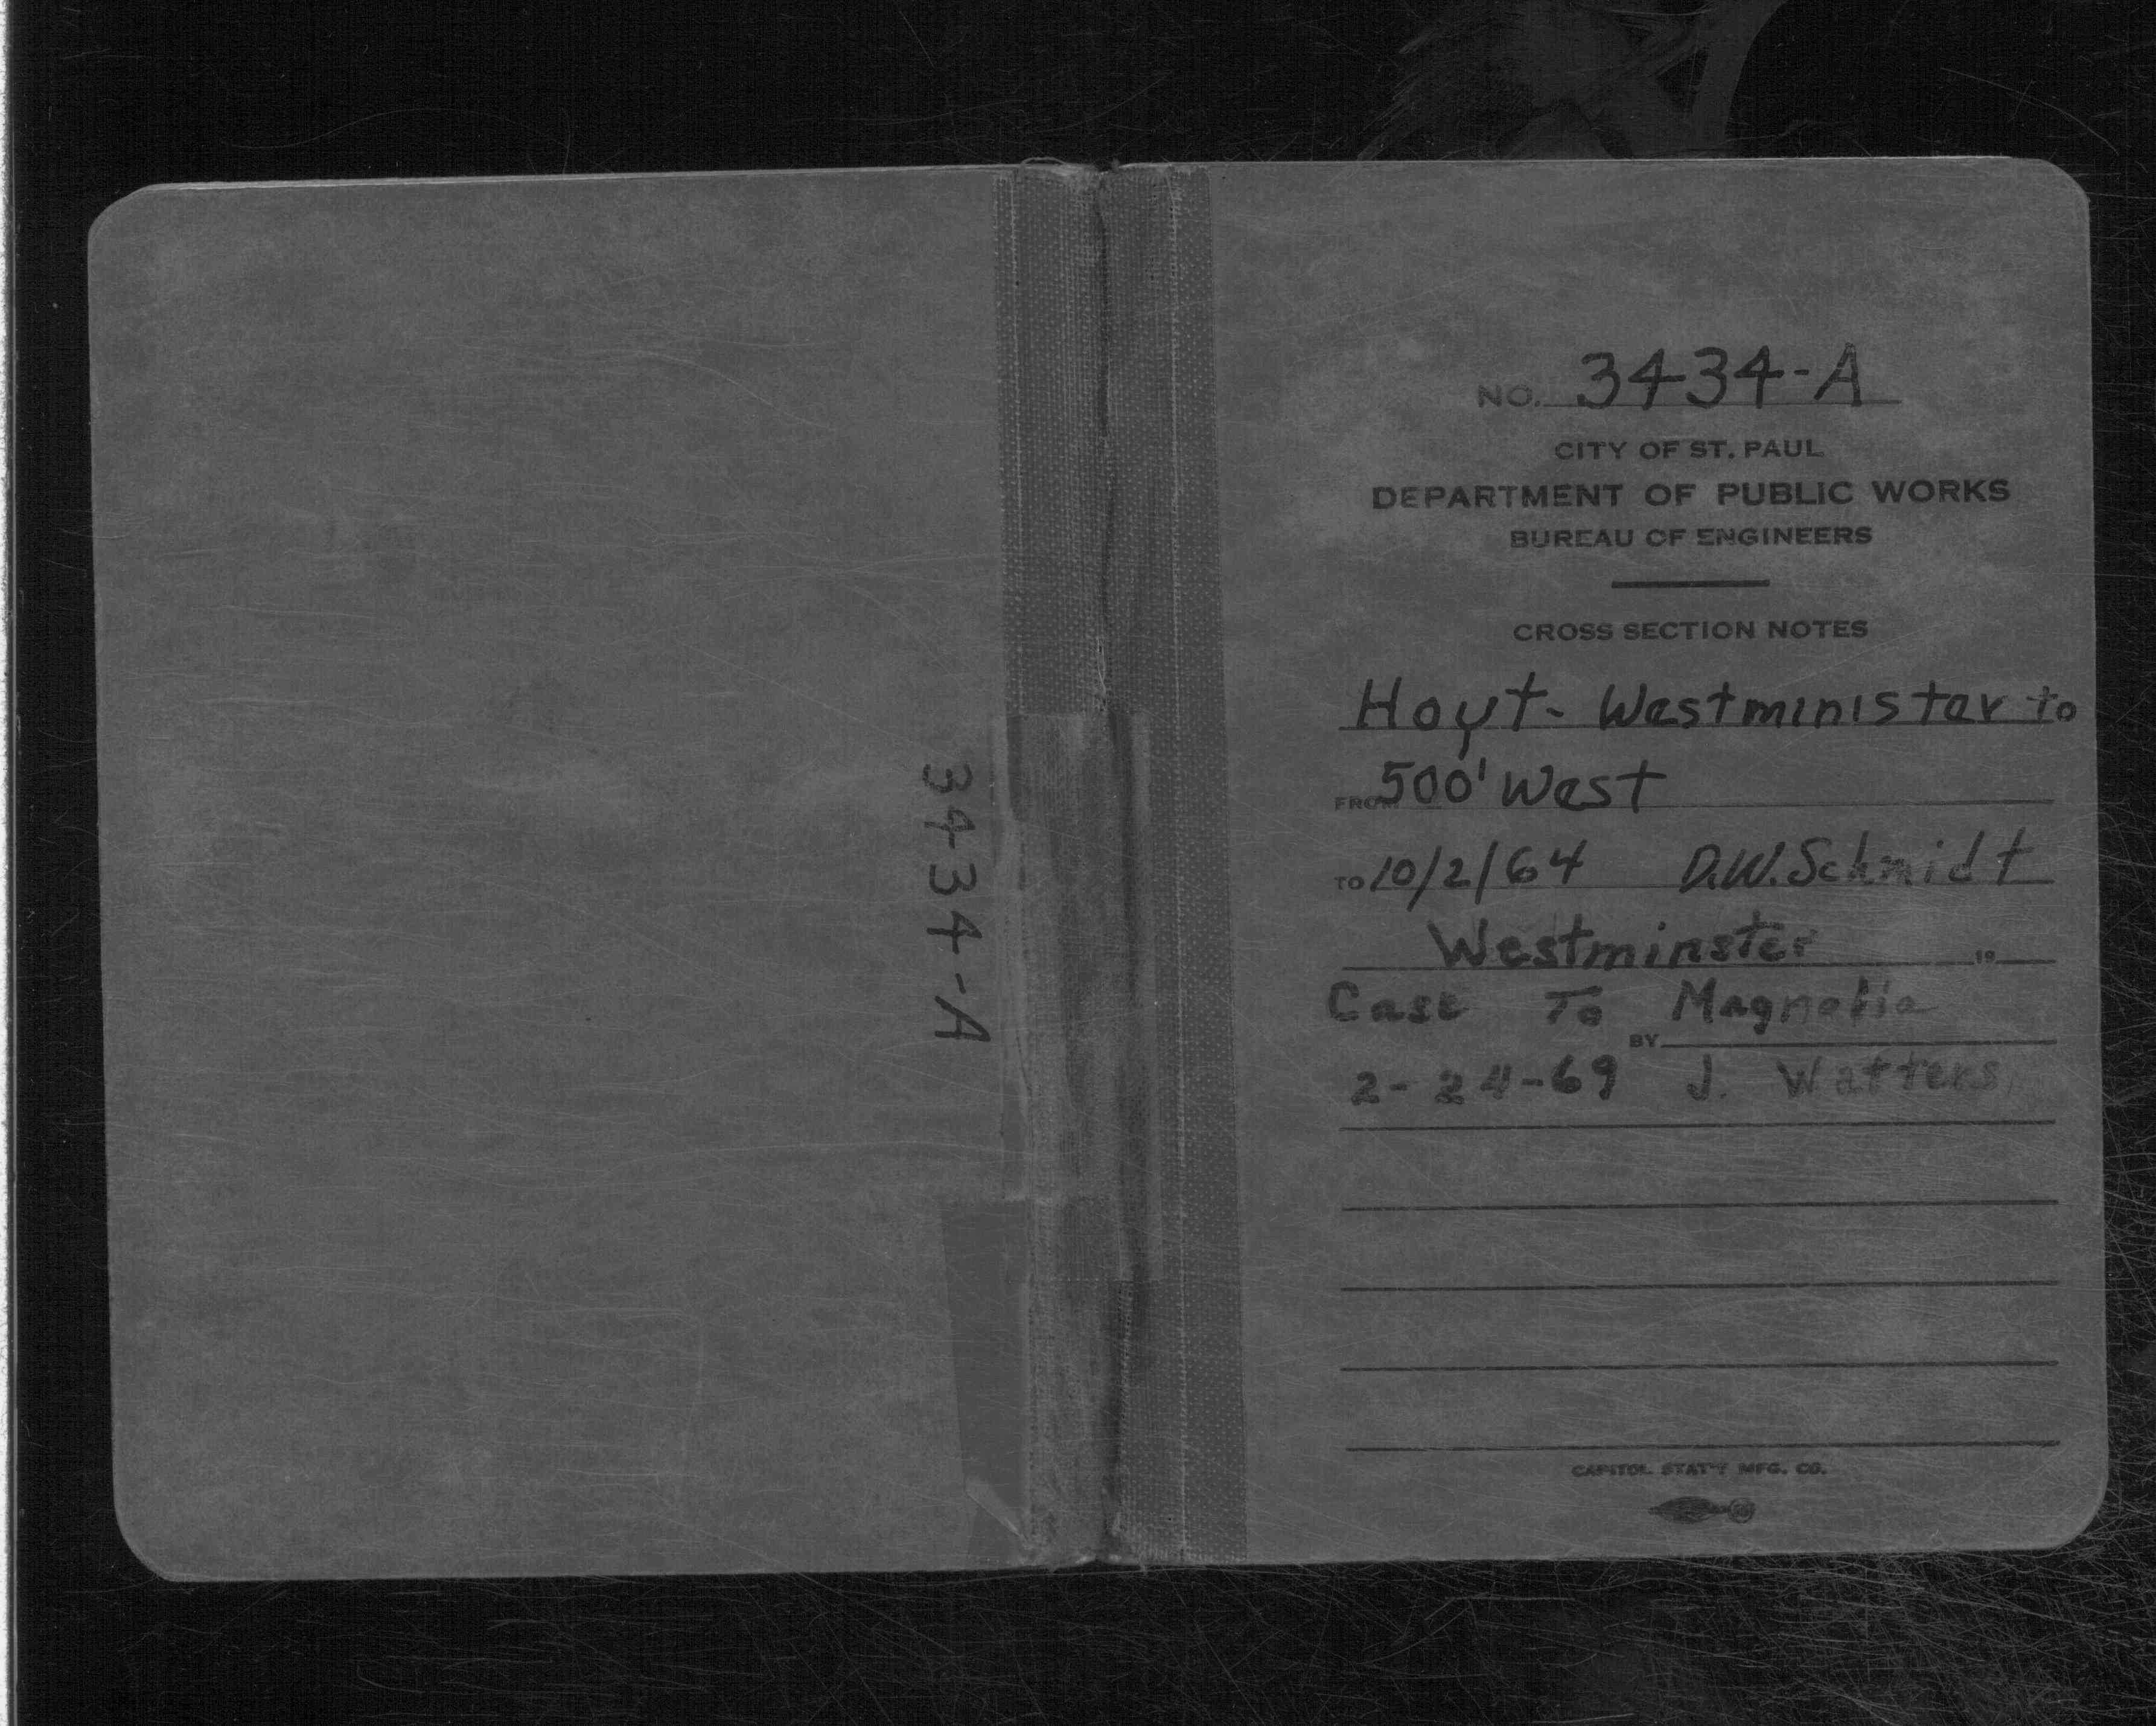 3434-A
NO. 3434-A
CITY OF ST. PAUL
DEPARTMENT OF PUBLIC WORKS
BUREAU OF ENGINEERS
CROSS SECTION NOTES
Hoyt- Westminister to
FROM 500' West
TO 10/2/64 D.W.Schmidt
Westminster 19
Case To Magnolia
BY
2-24-69 J. Watters
CAPITOL STAT'Y MFG. CO.